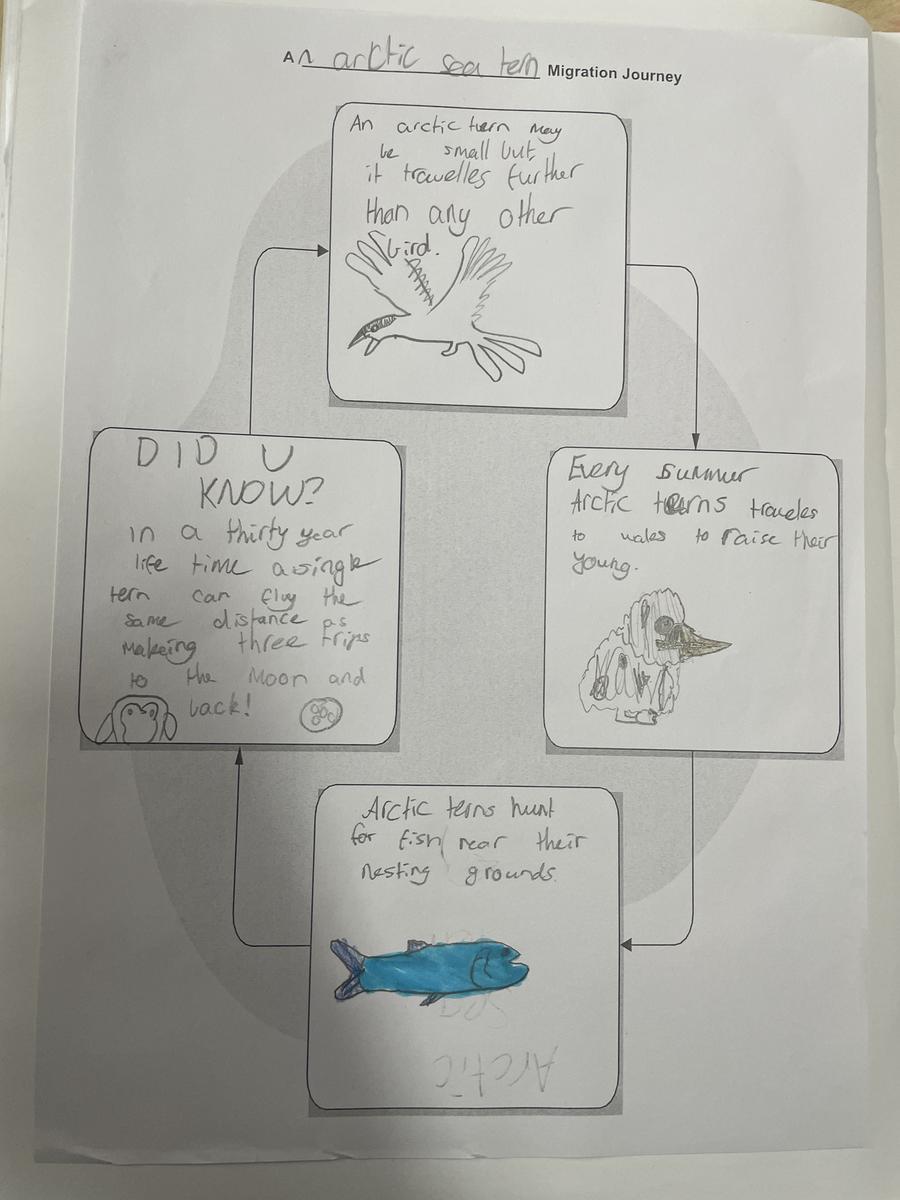 An arctic sea tern Migration Journey
An arctic tern may
be small but
it travelles further
than any other
bird.
Every summer
Arctic terns traveles
to wales to raise their
young.
Arctic terns hunt
for fish near their
nesting grounds.
Sea
Arctic
DID U
KNOW?
in a thirty year
life time a single
tern can fluy the
same distance as
makeing three trips
to the Moon and
back!